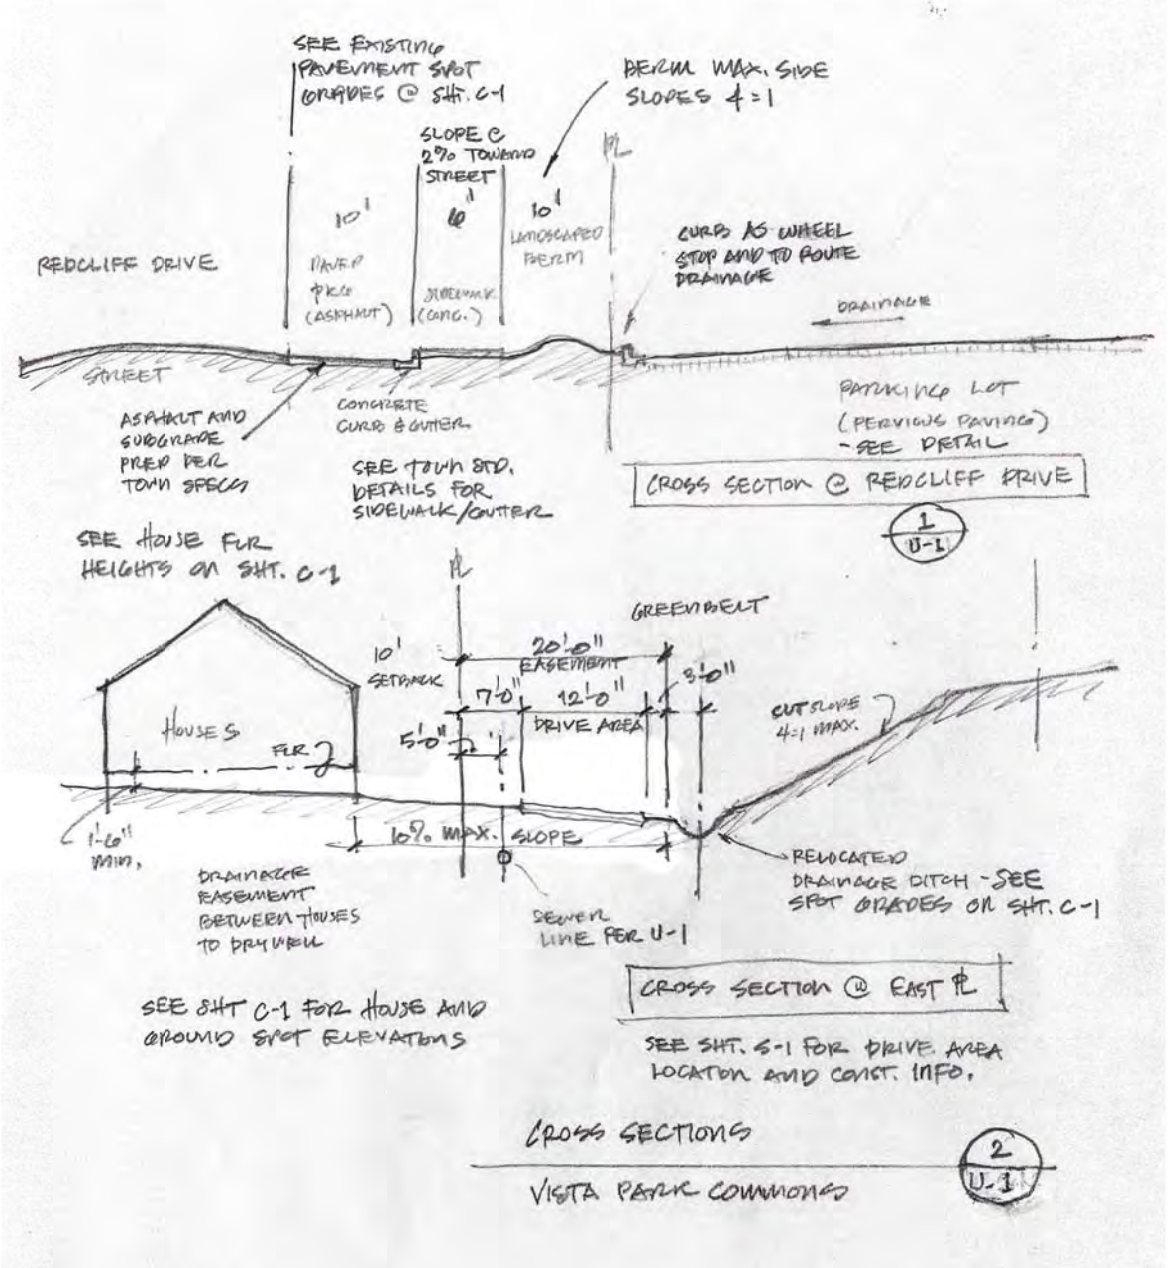 SEE EXISTING
PAVEMENT SPOT
GRADES @ SHT. C-1
BERM MAX. SIDE
SLOPES 4=1
SLOPE @
2% TOWARD
STREET
PL
10'
6'
10'
LANDSCAPED
BERM
REDCLIFF DRIVE
PAVED
PKG
(ASPHALT)
SIDEWALK
(CONC.)
CURB AS WHEEL
STOP AND TO ROUTE
DRAINAGE
DRAINAGE
STREET
ASPHALT AND
SUBGRADE
PREP PER
TOWN SPECS
CONCRETE
CURB & GUTTER
SEE TOWN STD.
DETAILS FOR
SIDEWALK/GUTTER
PARKING LOT
(PERVIOUS PAVING)
- SEE DETAIL
CROSS SECTION @ REDCLIFF DRIVE
1
U-1
SEE HOUSE FLR
HEIGHTS ON SHT. C-1
PL
GREENBELT
10'
SETBACK
20'-0"
EASEMENT
7'-0"
12'-0"
3'-0"
DRIVE AREA
5'-0"
CUT SLOPE
4=1 MAX.
HOUSES
FLR
1'-6"
MIN.
10% MAX. SLOPE
DRAINAGE
EASEMENT
BETWEEN HOUSES
TO DRYWELL
SEWER
LINE PER U-1
RELOCATED
DRAINAGE DITCH - SEE
SPOT GRADES ON SHT. C-1
CROSS SECTION @ EAST PL
SEE SHT C-1 FOR HOUSE AND
GROUND SPOT ELEVATIONS
SEE SHT. S-1 FOR DRIVE AREA
LOCATION AND CONST. INFO.
CROSS SECTIONS
VISTA PARK COMMONS
2
U-1